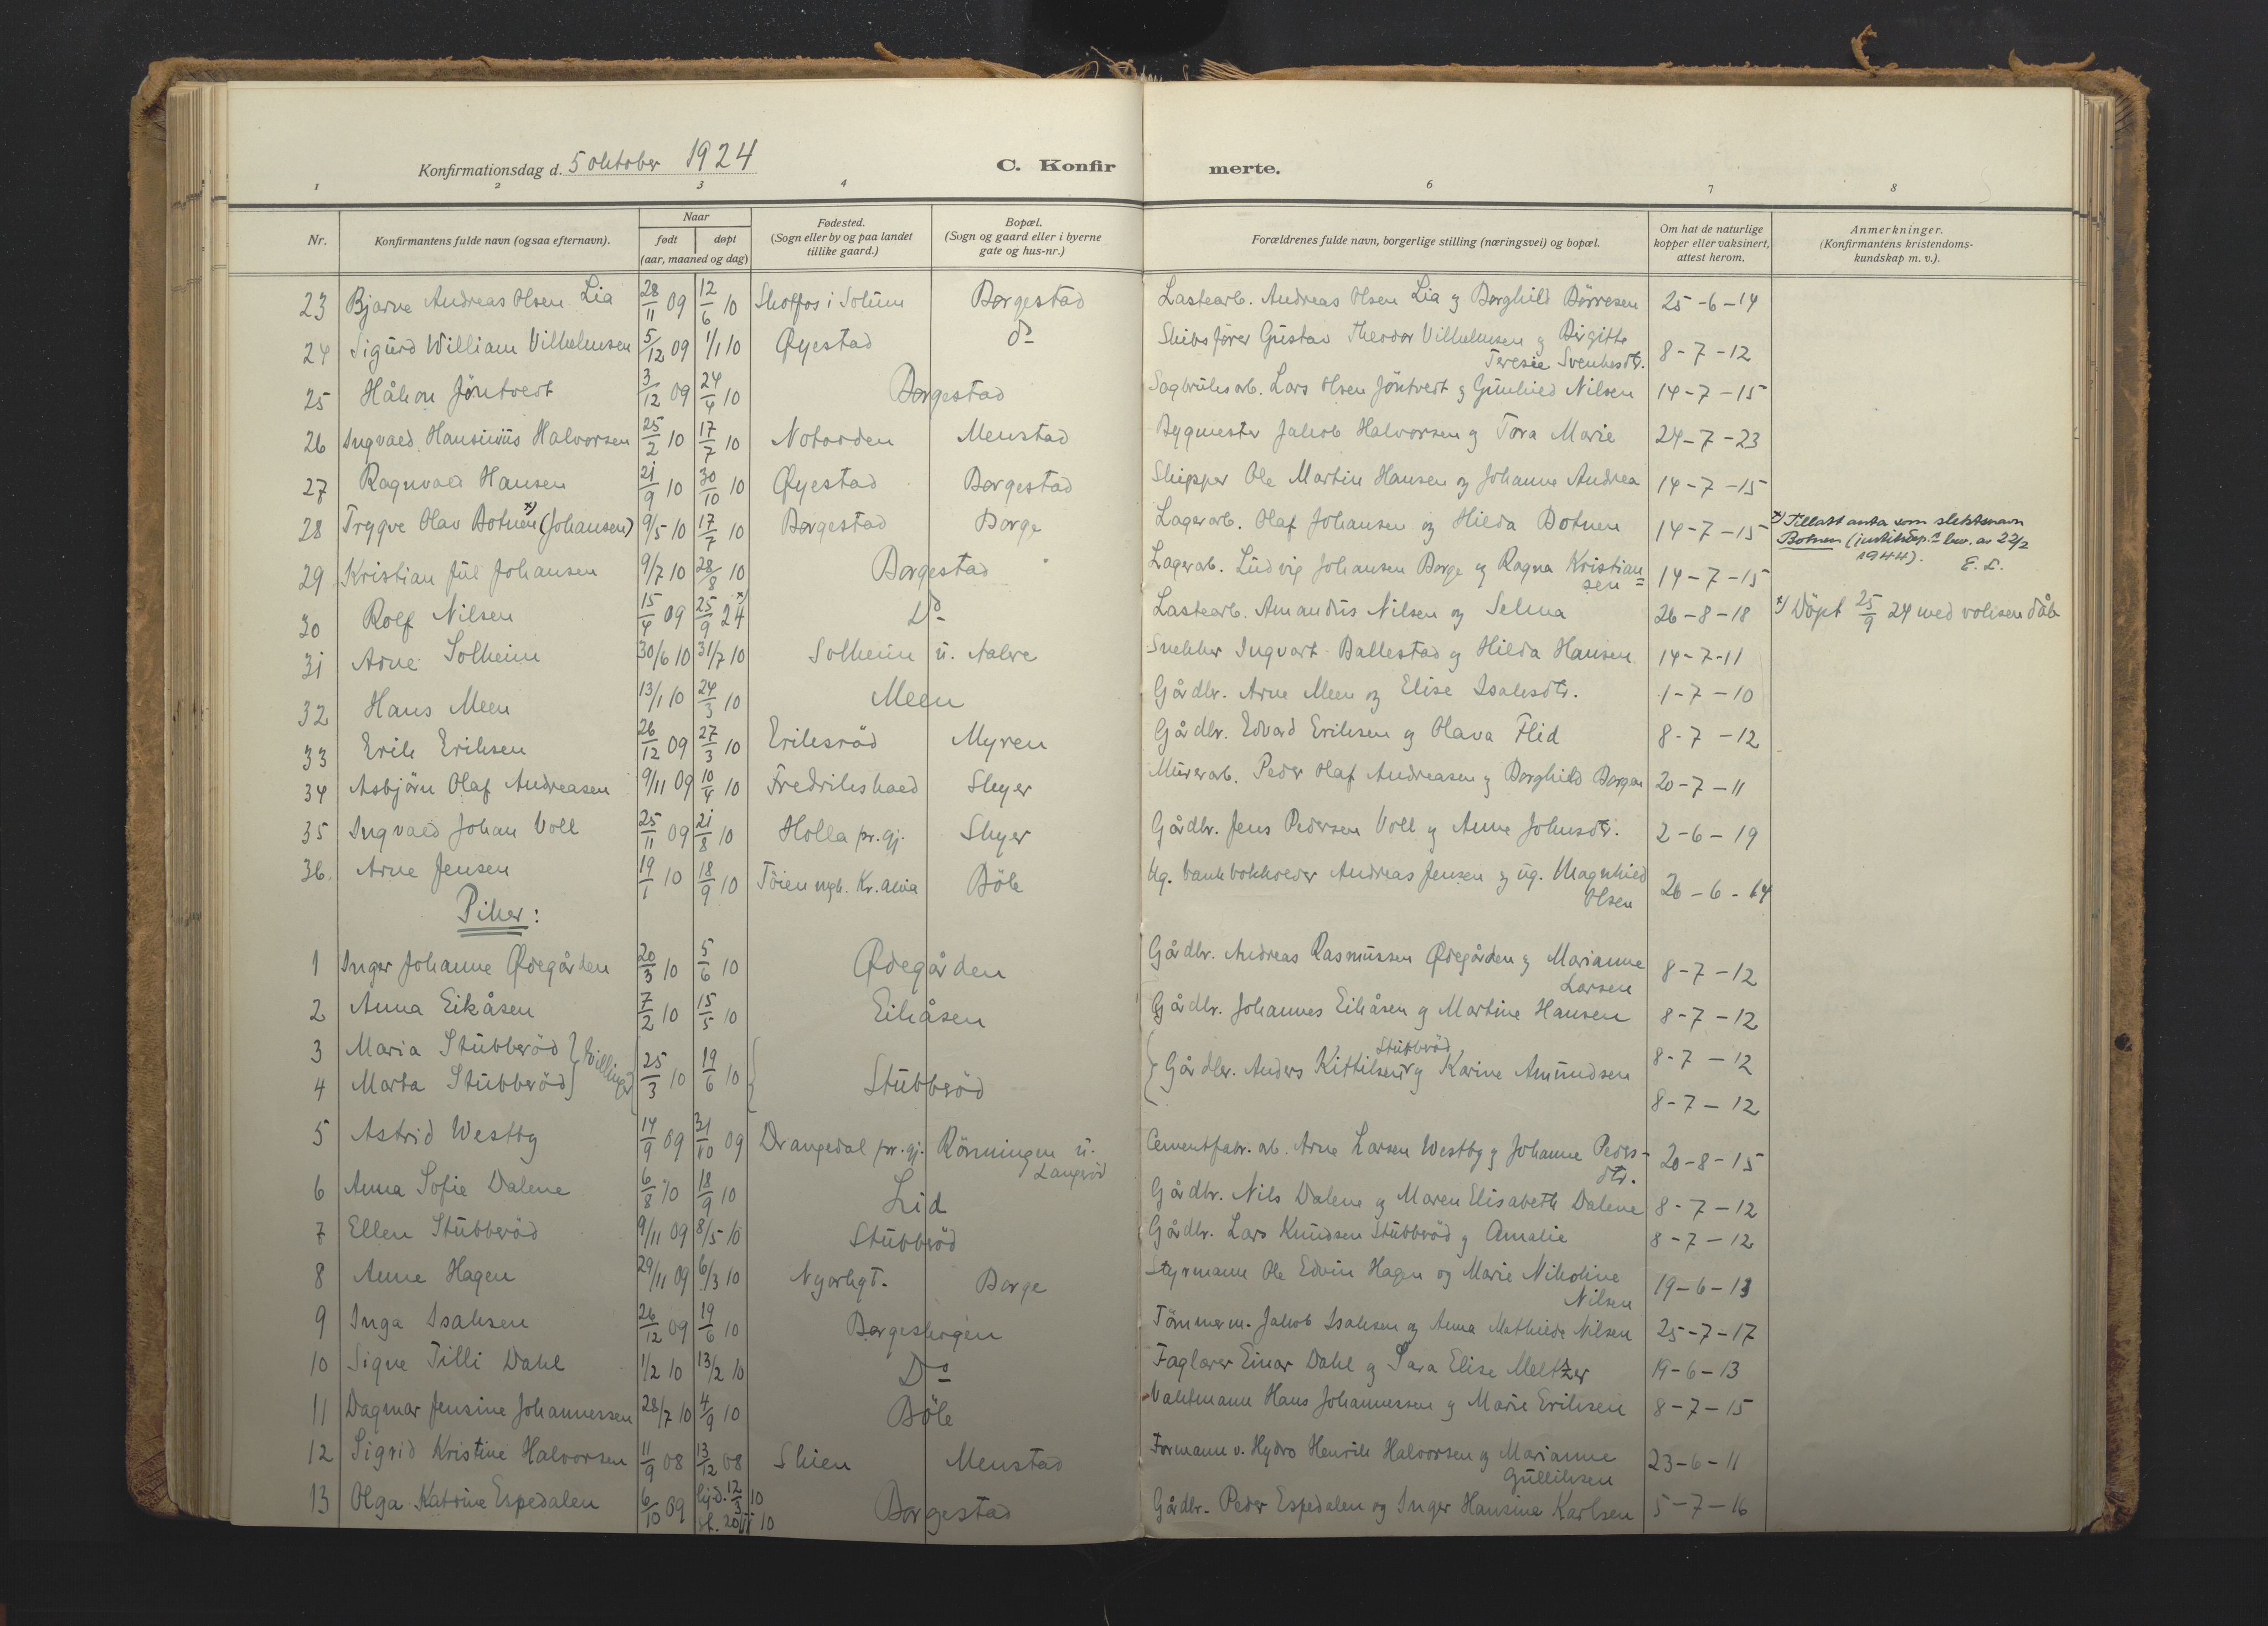 Konfirmationsdag d. 5 oktober 1924
C. Konfirmerte.
1 2 3 4 6 7 8
Nr.
Konfirmantens fulde navn (ogsaa efternavn).
Naar
født døpt
(aar, maaned og dag)
Fødested.
(Sogn eller by og paa landet
tillike gaard.)
Bopæl.
(Sogn og gaard eller i byerne
gate og hus-nr.)
Forældrenes fulde navn, borgerlige stilling (næringsvei) og bopæl.
Om hat de naturlige
kopper eller vaksinert,
attest herom.
Anmerkninger.
(Konfirmantens kristendoms-
kundskap m. v.).
23 Bjarne Andreas Olsen Lia 28/11 09 12/6 10 Skotfos i Solum Borgestad Lastearb. Andreas Olsen Lia og Borghild Börresen 25-6-14
24 Sigurd William Vilhelmsen 5/12 09 1/1 10 Øyestad do Skibsfører Gustav Theodor Vilhelmsen og Birgitte
Teresie Svenkesdtr. 8-7-12
25 Håkon Jöntvedt 3/12 09 24/4 10 Borgestad Sagbruksarb. Lars Olsen Jöntvedt og Gunhild Nilsen 14-7-15
26 Ingvald Hansinius Halvorsen 25/2 10 17/7 10 Notodden Menstad Bygmester Jakob Halvorsen og Tora Marie 24-7-23
27 Ragnvald Hansen 21/9 10 30/10 10 Øyestad Borgestad Skipper Ole Martin Hansen og Johanne Andrea 14-7-15
28 Trygve Olav Botnen x) (Johansen) 9/5 10 17/7 10 Borgestad Borge Lagerarb. Olaf Johansen og Hilda Botnen 14-7-15 x) Tillatt anta som slektsnavn
Botnen (justitsdep.s bev. av 22/2
1944). E. L.
29 Kristian Jul Johansen 9/7 10 28/8 10 Borgestad Lagerarb. Ludvig Johansen Borge og Ragna Kristian=
sen 14-7-15
30 Rolf Nilsen 15/4 09 25/9 24 x) Do Lastearb. Amandus Nilsen og Selma 26-8-18 x) Döpt 25/9 24 med voksen dåb
31 Arne Solheim 30/6 10 31/7 10 Solheim u. Aalre Snekker Ingvart Ballestad og Hilda Hansen 14-7-11
32 Hans Meen 13/1 10 24/3 10 Meen Gårdbr. Arne Meen og Elise Isaksdtr. 1-7-10
33 Erik Eriksen 26/12 09 27/3 10 Eriksröd Myren Gårdbr. Edvard Eriksen og Olava Flid 8-7-12
34 Asbjörn Olaf Andreasen 9/11 09 10/4 10 Fredrikshald Skyer Murerarb. Peder Olaf Andreasen og Borghild Borgan 20-7-11
35 Ingvald Johan Voll 25/11 09 21/8 10 Holla pr.gj. Skyer Gårdbr. Jens Pedersen Voll og Anne Johnsdtr. 2-6-19
36. Arne Jensen 19/1 10 18/9 10 Töien mgh. Kr.ania Böle Ug. bankbokholder Andreas Jensen og ug. Magnhild
Olsen 26-6-14
Piker:
1 Inger Johanne Ødegården 20/3 10 5/6 10 Ødegården Gårdbr. Andreas Rasmussen Ødegården og Marianne
Larsen 8-7-12
2 Anna Eikåsen 7/2 10 15/5 10 Eikåsen Gårdbr. Johannes Eikåsen og Martine Hansen 8-7-12
3 Maria Stubberöd } tvillinger 25/3 10 19/6 10 Stubberöd Gårdbr. Anders Kittilsen Stubberöd og Karine Amundsen 8-7-12
4 Marta Stubberöd 8-7-12
5 Astrid Westby 14/9 09 31/10 09 Drangedal pr.gj. Rönningen u.
Langröd Cementfabr.arb. Arne Larsen Westby og Johanne Peders-
dtr. 20-8-15
6 Anna Sofie Dalene 6/8 10 18/9 10 Lid Gårdbr. Nils Dalene og Maren Elisabeth Dalene 8-7-12
7 Ellen Stubberöd 9/11 09 8/5 10 Stubberöd Gårdbr. Lars Knudsen Stubberöd og Amalie 8-7-12
8 Anne Hagen 29/11 09 6/3 10 Nyorhgt. Borge Styrmann Ole Edvin Hagen og Marie Nikoline
Nilsen 19-6-13
9 Inga Isaksen 26/12 09 19/6 10 Borgeskogen Tömmerm. Jakob Isaksen og Anna Mathilde Nilsen 25-7-17
10 Signe Tilli Dahl 1/2 10 13/2 10 Do Faglærer Einar Dahl og Sara Elise Meltzer 19-6-13
11 Dagmar Jensine Johannessen 28/7 10 4/9 10 Böle Vaktmann Hans Johannessen og Marie Eriksen 8-7-15
12 Sigrid Kristine Halvorsen 11/9 08 13/12 08 Skien Menstad Formann v. Hydro Henrik Halvorsen og Marianne
Gulliksen 23-6-11
13 Olga Katrine Espedalen 6/10 09 hjd. 12/3 10
st. 20/3 10 Borgestad Gårdbr. Peder Espedalen og Inger Hansine Karlsen 5-7-16